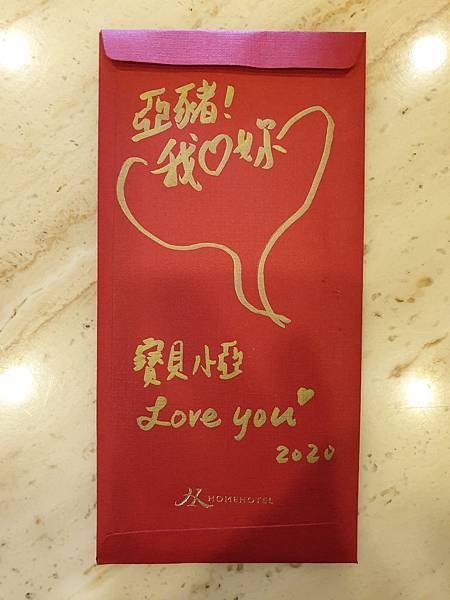 亞豬!
我♡妳
寶貝小亞
Love you♥
2020
HOMEHOTEL